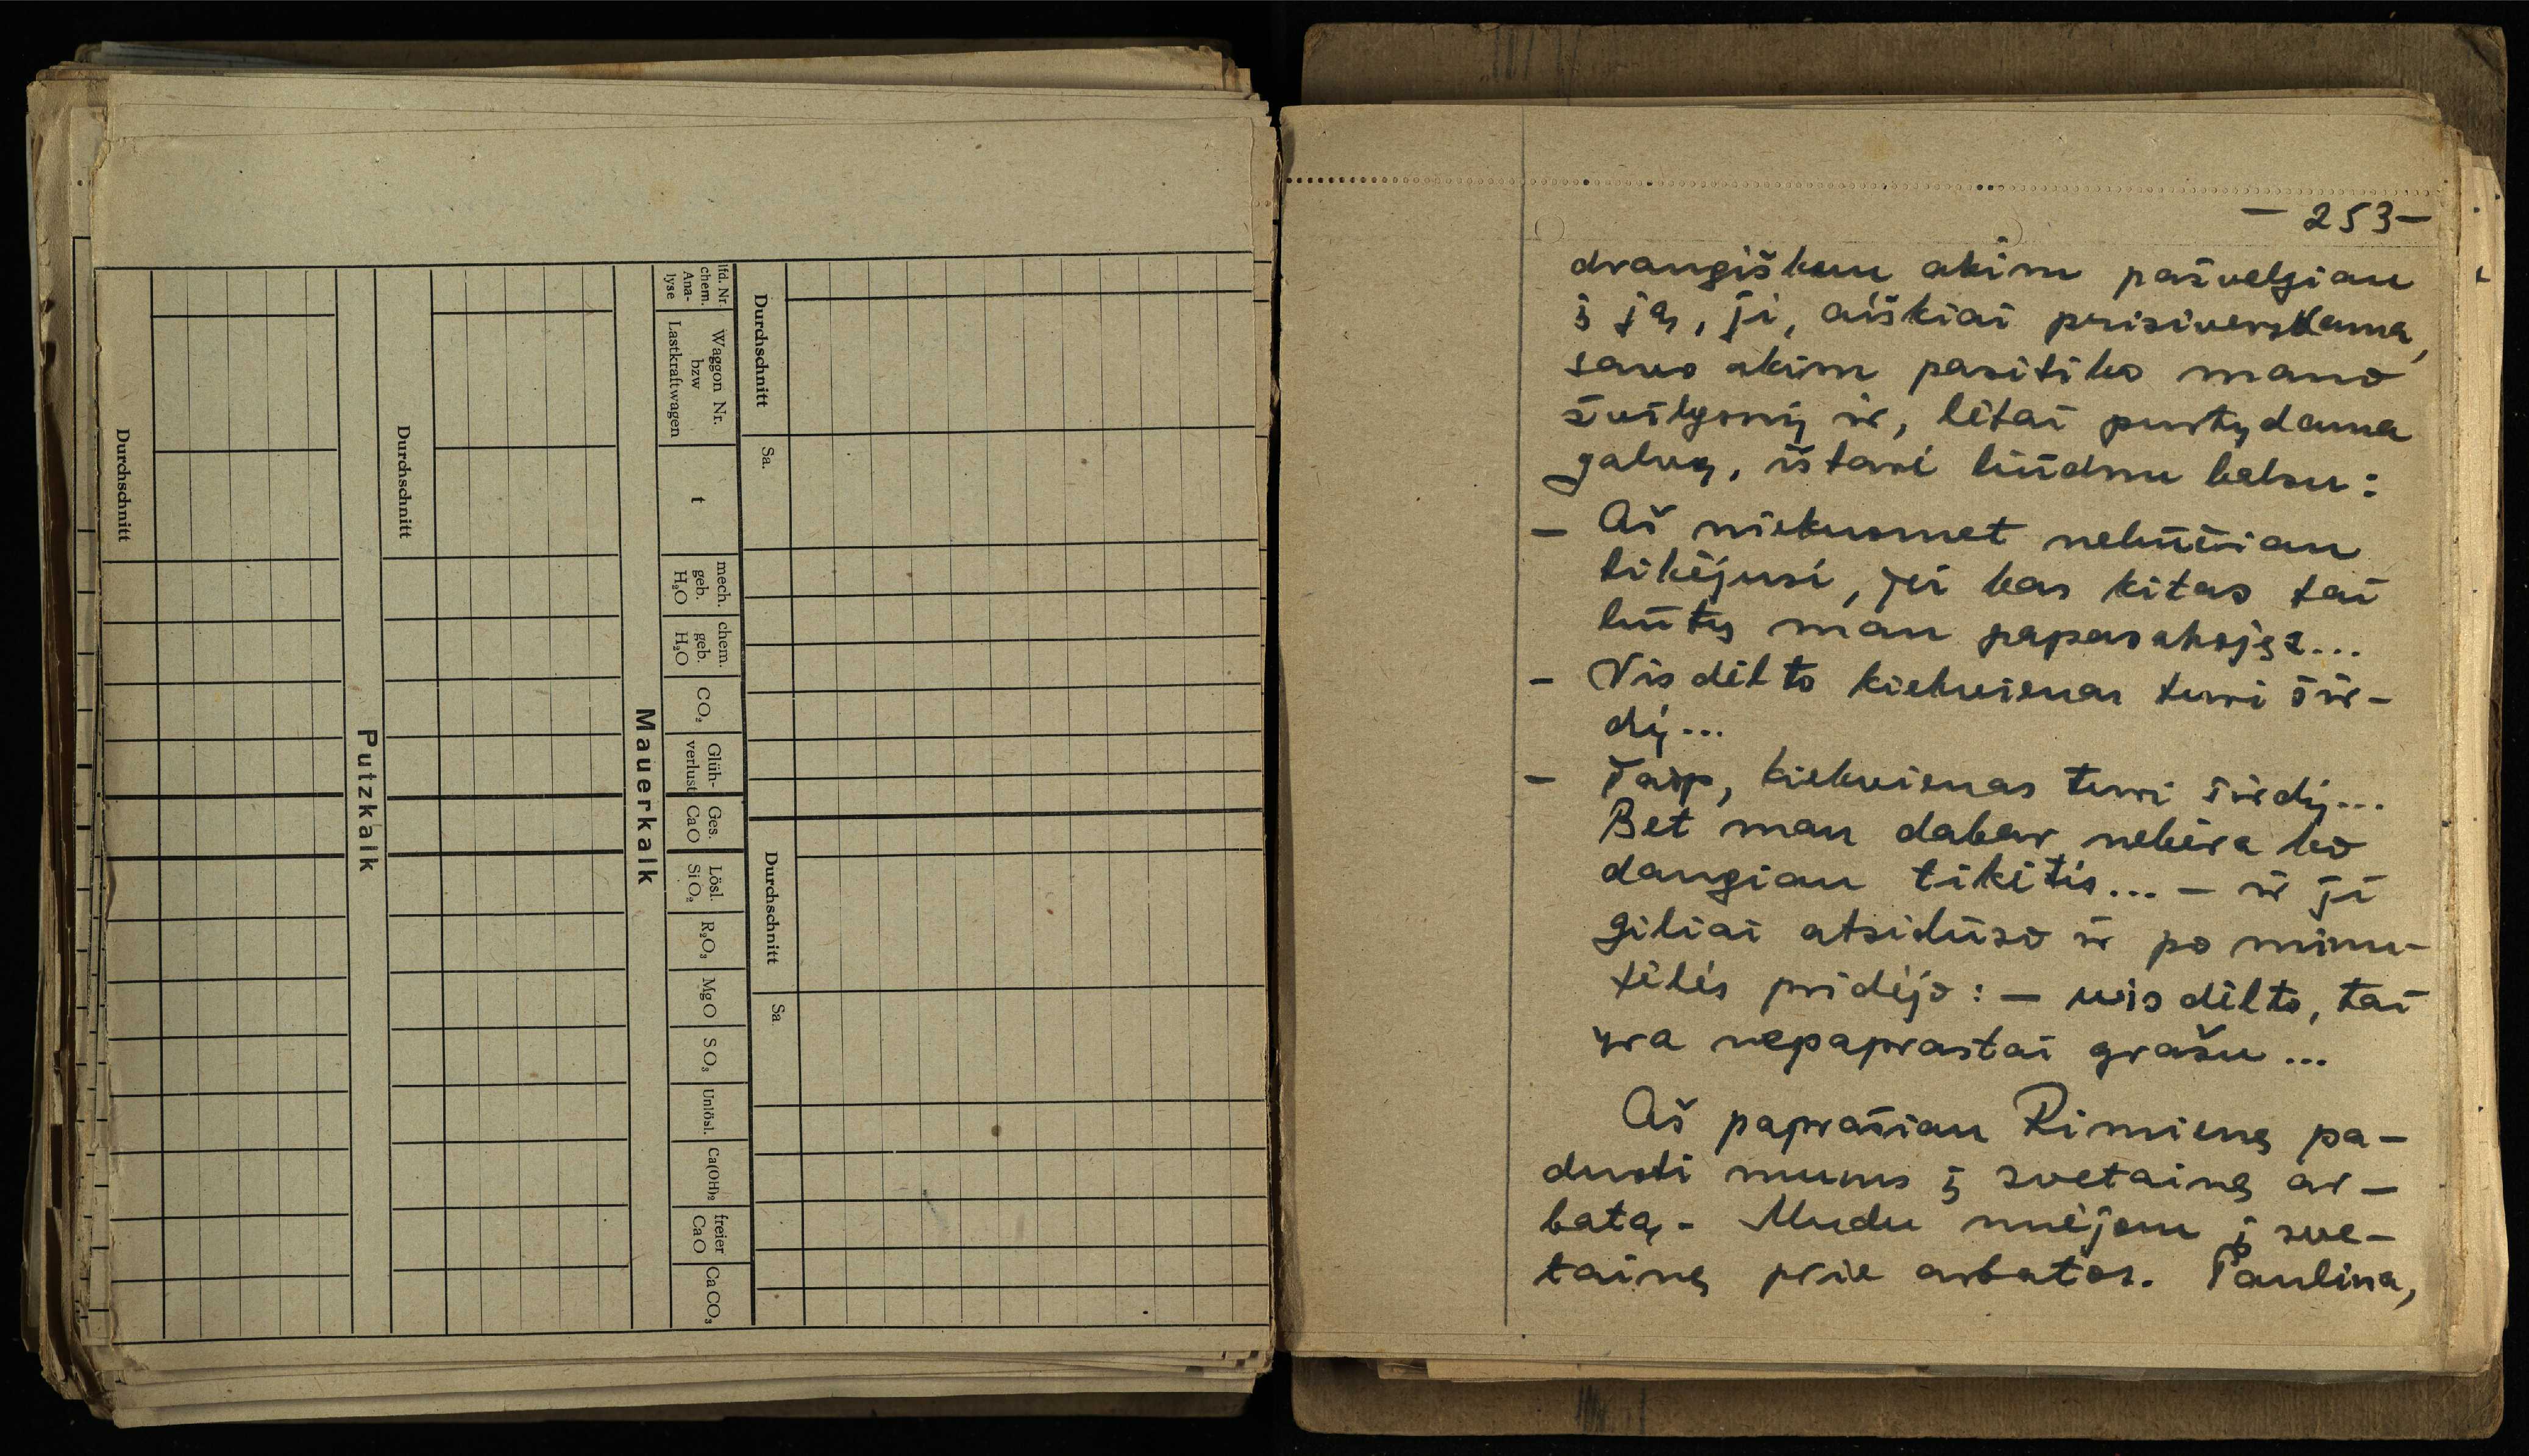 Durchschnitt
Putzkalk
Durchschnitt
Mauerkalk
lfd. Nr. chem. Ana- lyse
Waggon Nr. bzw Lastkraftwagen
t
mech. geb. H₂O
chem. geb. H₂O
CO₂
Glüh- verlust
Ges. CaO
Lösl. SiO₂
R₂O₃
MgO
SO₃
Unlösl.
Ca(OH)₂
freier CaO
CaCO₃
Durchschnitt
Sa.
Durchschnitt
Sa
— 253 —
draugiškom akim pažvelgiau
į ją, ji, aiškiai prisiversdama,
savo akim pasitiko mano
žvilgsnį ir, lėtai purtydama
galvą, ištarė liūdnu balsu:
— Aš niekuomet nebūčiau
tikėjusi, jei kas kitas tai
būtų man papasakojęs...
— Vis dėlto kiekvienas turi šir-
dį...
— Taip, kiekvienas turi širdį...
Bet man dabar nebėra ko
daugiau tikėtis... — ir ji
giliai atsidūso ir po minu-
tėlės pridėjo: — vis dėlto, tai
yra nepaprastai gražu...
Aš paprašiau Rimienę pa-
duoti mums į svetainę ar-
batą. Mudu nuėjom į sve-
tainę prie arbatos. Paulina,